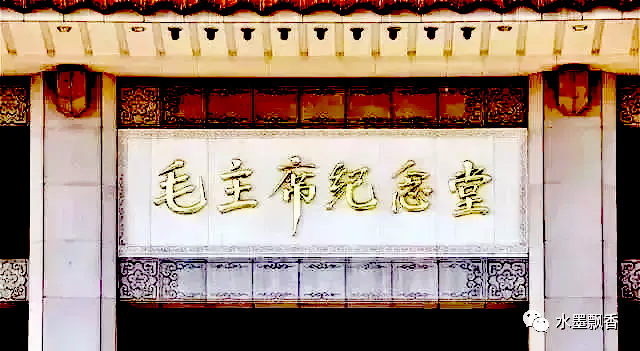 毛主席纪念堂
水墨飘香